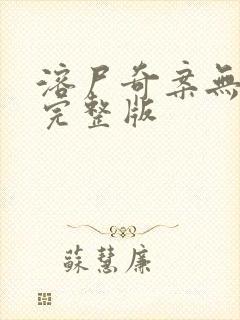 溶尸奇案無
完整版
蘇慧廉